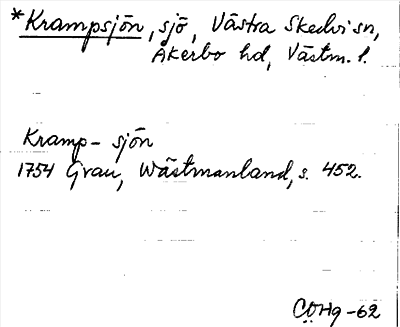 *Krampsjön, sjö, Västra Skedvi sn,
Åkerbo hd, Västm. l.
Kramp- sjön
1754 Grau, Wästmanland, s. 452.
COHg -62